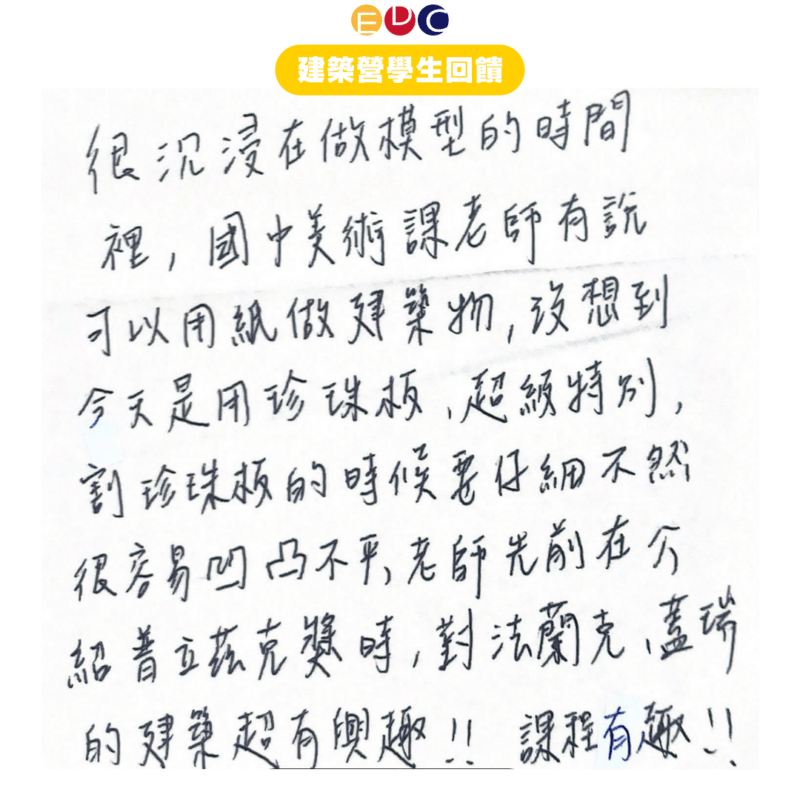 EDC
建築營學生回饋
很沉浸在做模型的時間
裡，國中美術課老師有說
可以用紙做建築物，沒想到
今天是用珍珠板、超級特別，
割珍珠板的時候要仔細不然
很容易凹凸不平，老師先前在介
紹普立茲克獎時，對法蘭克、蓋瑞
的建築超有興趣!! 課程有趣!!